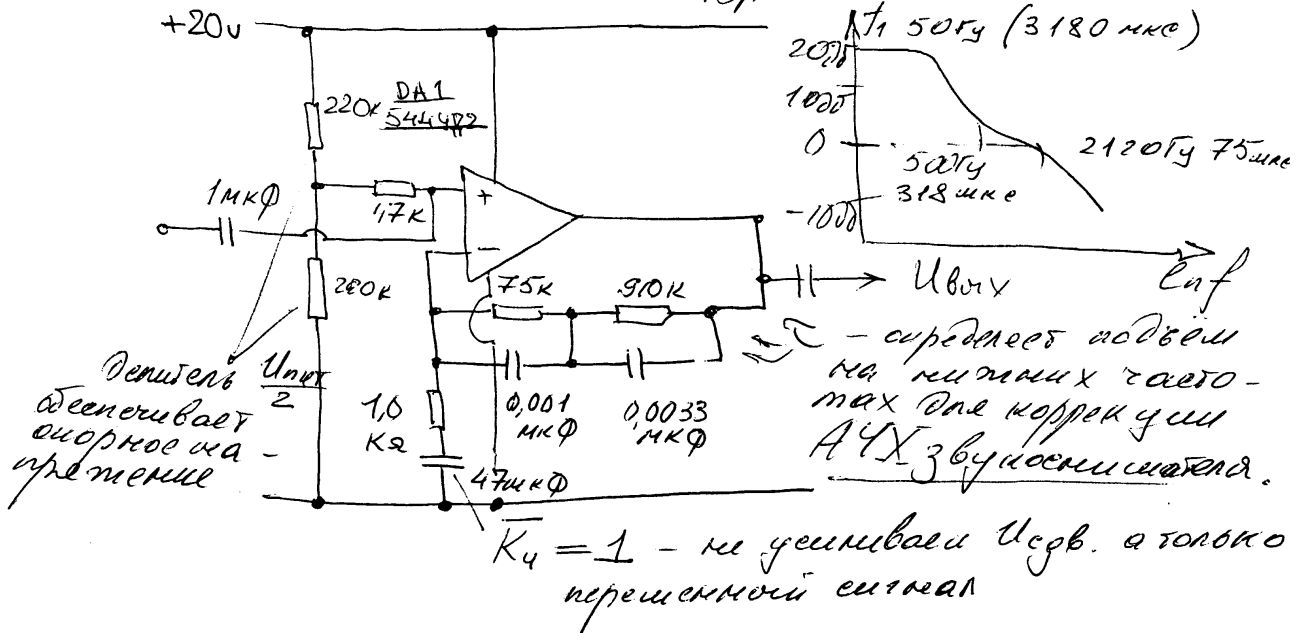 +20v
220к
DA1
544УД2
1мкФ
47к
+
−
220к
75к
910к
Делитель Uпит/2
обеспечивает
опорное на-
пряжение
1,0
КΩ
0,001
мкФ
0,0033
мкФ
47мкФ
Uвых
f1 50Гц (3180 мкс)
20дб
10дб
0
-10дб
500Гц
318мкс
2120Гц 75мкс
ln f
- определяет подъём
на нижних часто-
тах для коррекции
АЧХ звукоснимателя.
Kч = 1 - не усиливаем Uсдв. а только
переменный сигнал